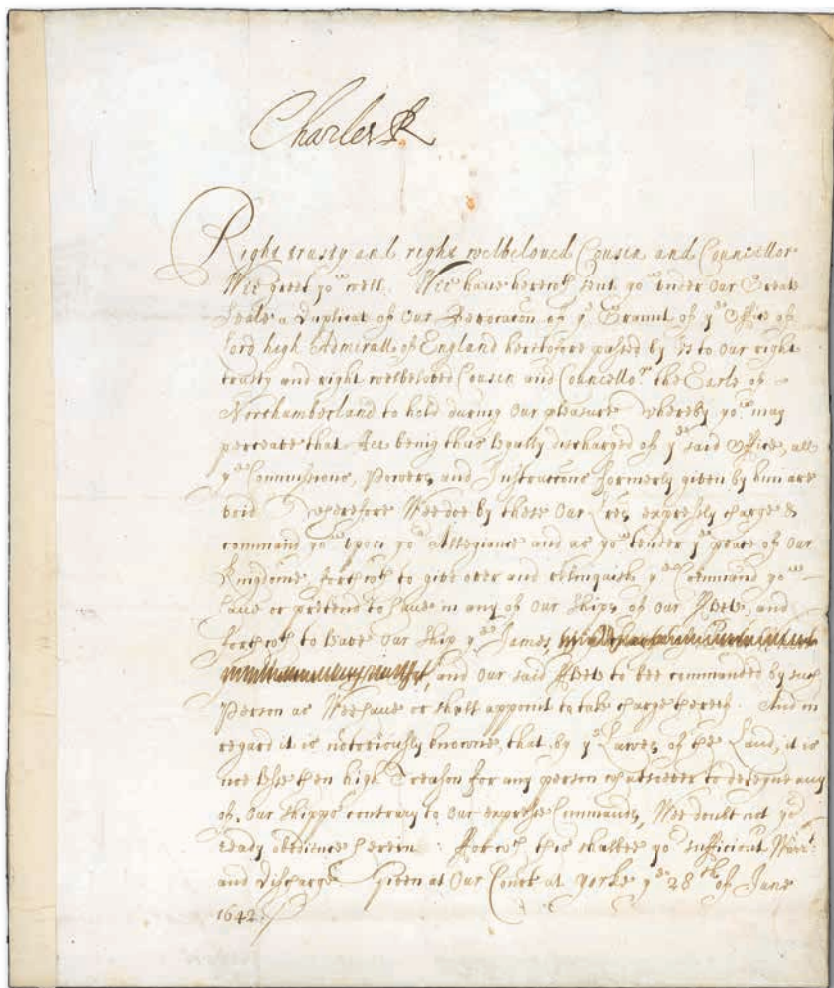 Charles R
Right trusty and right welbeloved Cousin and Councellor
Wee greet yow well. Wee have herewth sent yow under Our Greate
Seale a Duplicat of Our Revocacōn of ye Graunt of ye Office of
Lord high Admirall of England heretofore passed by Us to Our right
trusty and right welbeloved Cousin and Councellor the Earle of
Northumberland to hold during Our pleasure whereby yow may
perceave that Hee being thus legally discharged of ye said Office, all
ye Commissions, Powers, and Instruccōns formerly given by him are
void Wherefore Wee doe by these Our Lres, expressly charge &
command yow upon yor Allegiance and as yow tender ye peace of Our
Kingdome, forthwth to give over and relinquish ye Command yow
have or pretend to have in any of Our Ships, of Our Fleet, and
forthwth to leave Our Ship ye James,
and Our said Fleet to bee commanded by such
Person as Wee have or shall appoint to take charge thereof. And in
regard it is notoriously knowne, that by ye Lawes of the Land, it is
noe lesse then high Treason for any person whatsoever to deteyne any
of Our Shipps contrary to Our expresse Commands, Wee doubt not yor
ready obedience herein For wch this shalbee yor sufficient Warrt
and discharge Given at Our Court at Yorke ye 28th of June
1642.